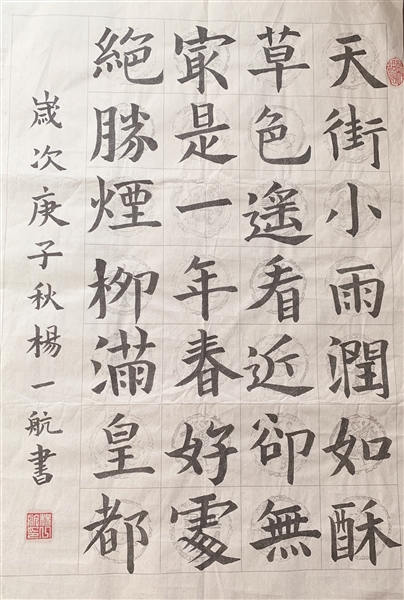 天街小雨潤如酥
草色遥看近卻無
冣是一年春好處
絶勝煙柳滿皇都
歲次庚子秋楊一航書